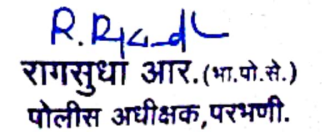 रागसुधा आर.(भा.पो.से.)
पोलीस अधीक्षक,परभणी.